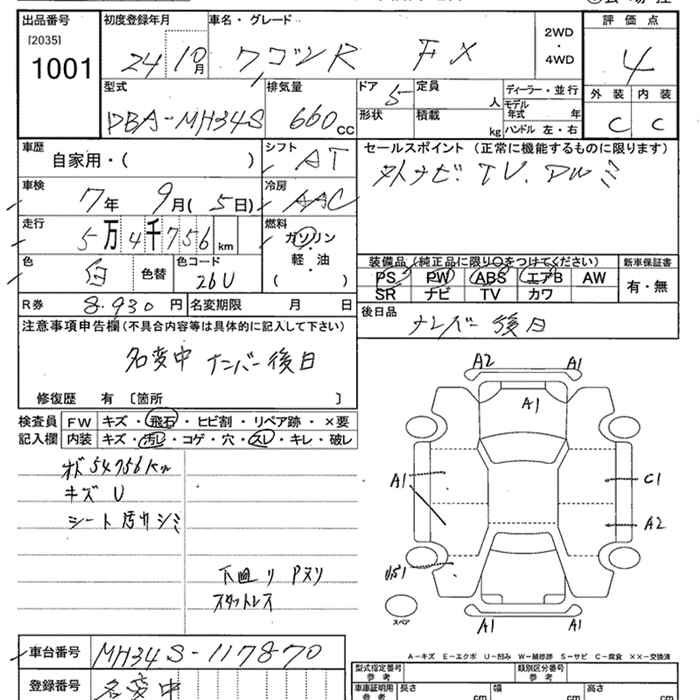 出品番号 初度登録年月 車名・グレード 評価点
[2035]
1001
24 10月 ワゴンR FX
2WD
・
4WD
4
型式 排気量 ドア 定員 ディーラー・並行 外装 内装
DBA-MH34S 660cc 5 人
形状 積載 kg
モデル年式 年
ハンドル 左・右
C C
車歴 自家用・( )
シフト AT
セールスポイント (正常に機能するものに限ります)
TV. アルミ
車検 7年 9月(5日)
冷房 AAC
走行 5万4千756km
燃料 ガソリン・軽・油 ( )
色 白 色替 色コード 26U
装備品(純正品に限り○をつけてください) 新車保証書
PS PW ABS エアB AW 有・無
SR ナビ TV カワ
R券 8.930円 名変期限 月 日
後日品 ナンバー後日
注意事項申告欄(不具合内容等は具体的に記入して下さい)
名変中 ナンバー後日
修復歴 有 〔箇所 〕
検査員 FW キズ・飛石・ヒビ割・リペア跡・×要
記入欄 内装 キズ・汚レ・コゲ・穴・スレ・キレ・破レ
54756km
キズ U
シート汚れシミ
下廻り Pヌリ
スタットレス
A2 A1
A1
A1 C1
A2
A1 A1
スペア
A-キズ E-エクボ U-凹み W-補修跡 S-サビ C-腐食 ××-交換済
車台番号 MH34S-117870
型式指定番号 参考 類別区分番号 参考
登録番号 名変中
車庫証明用 参考 長さ cm 幅 cm 高さ cm